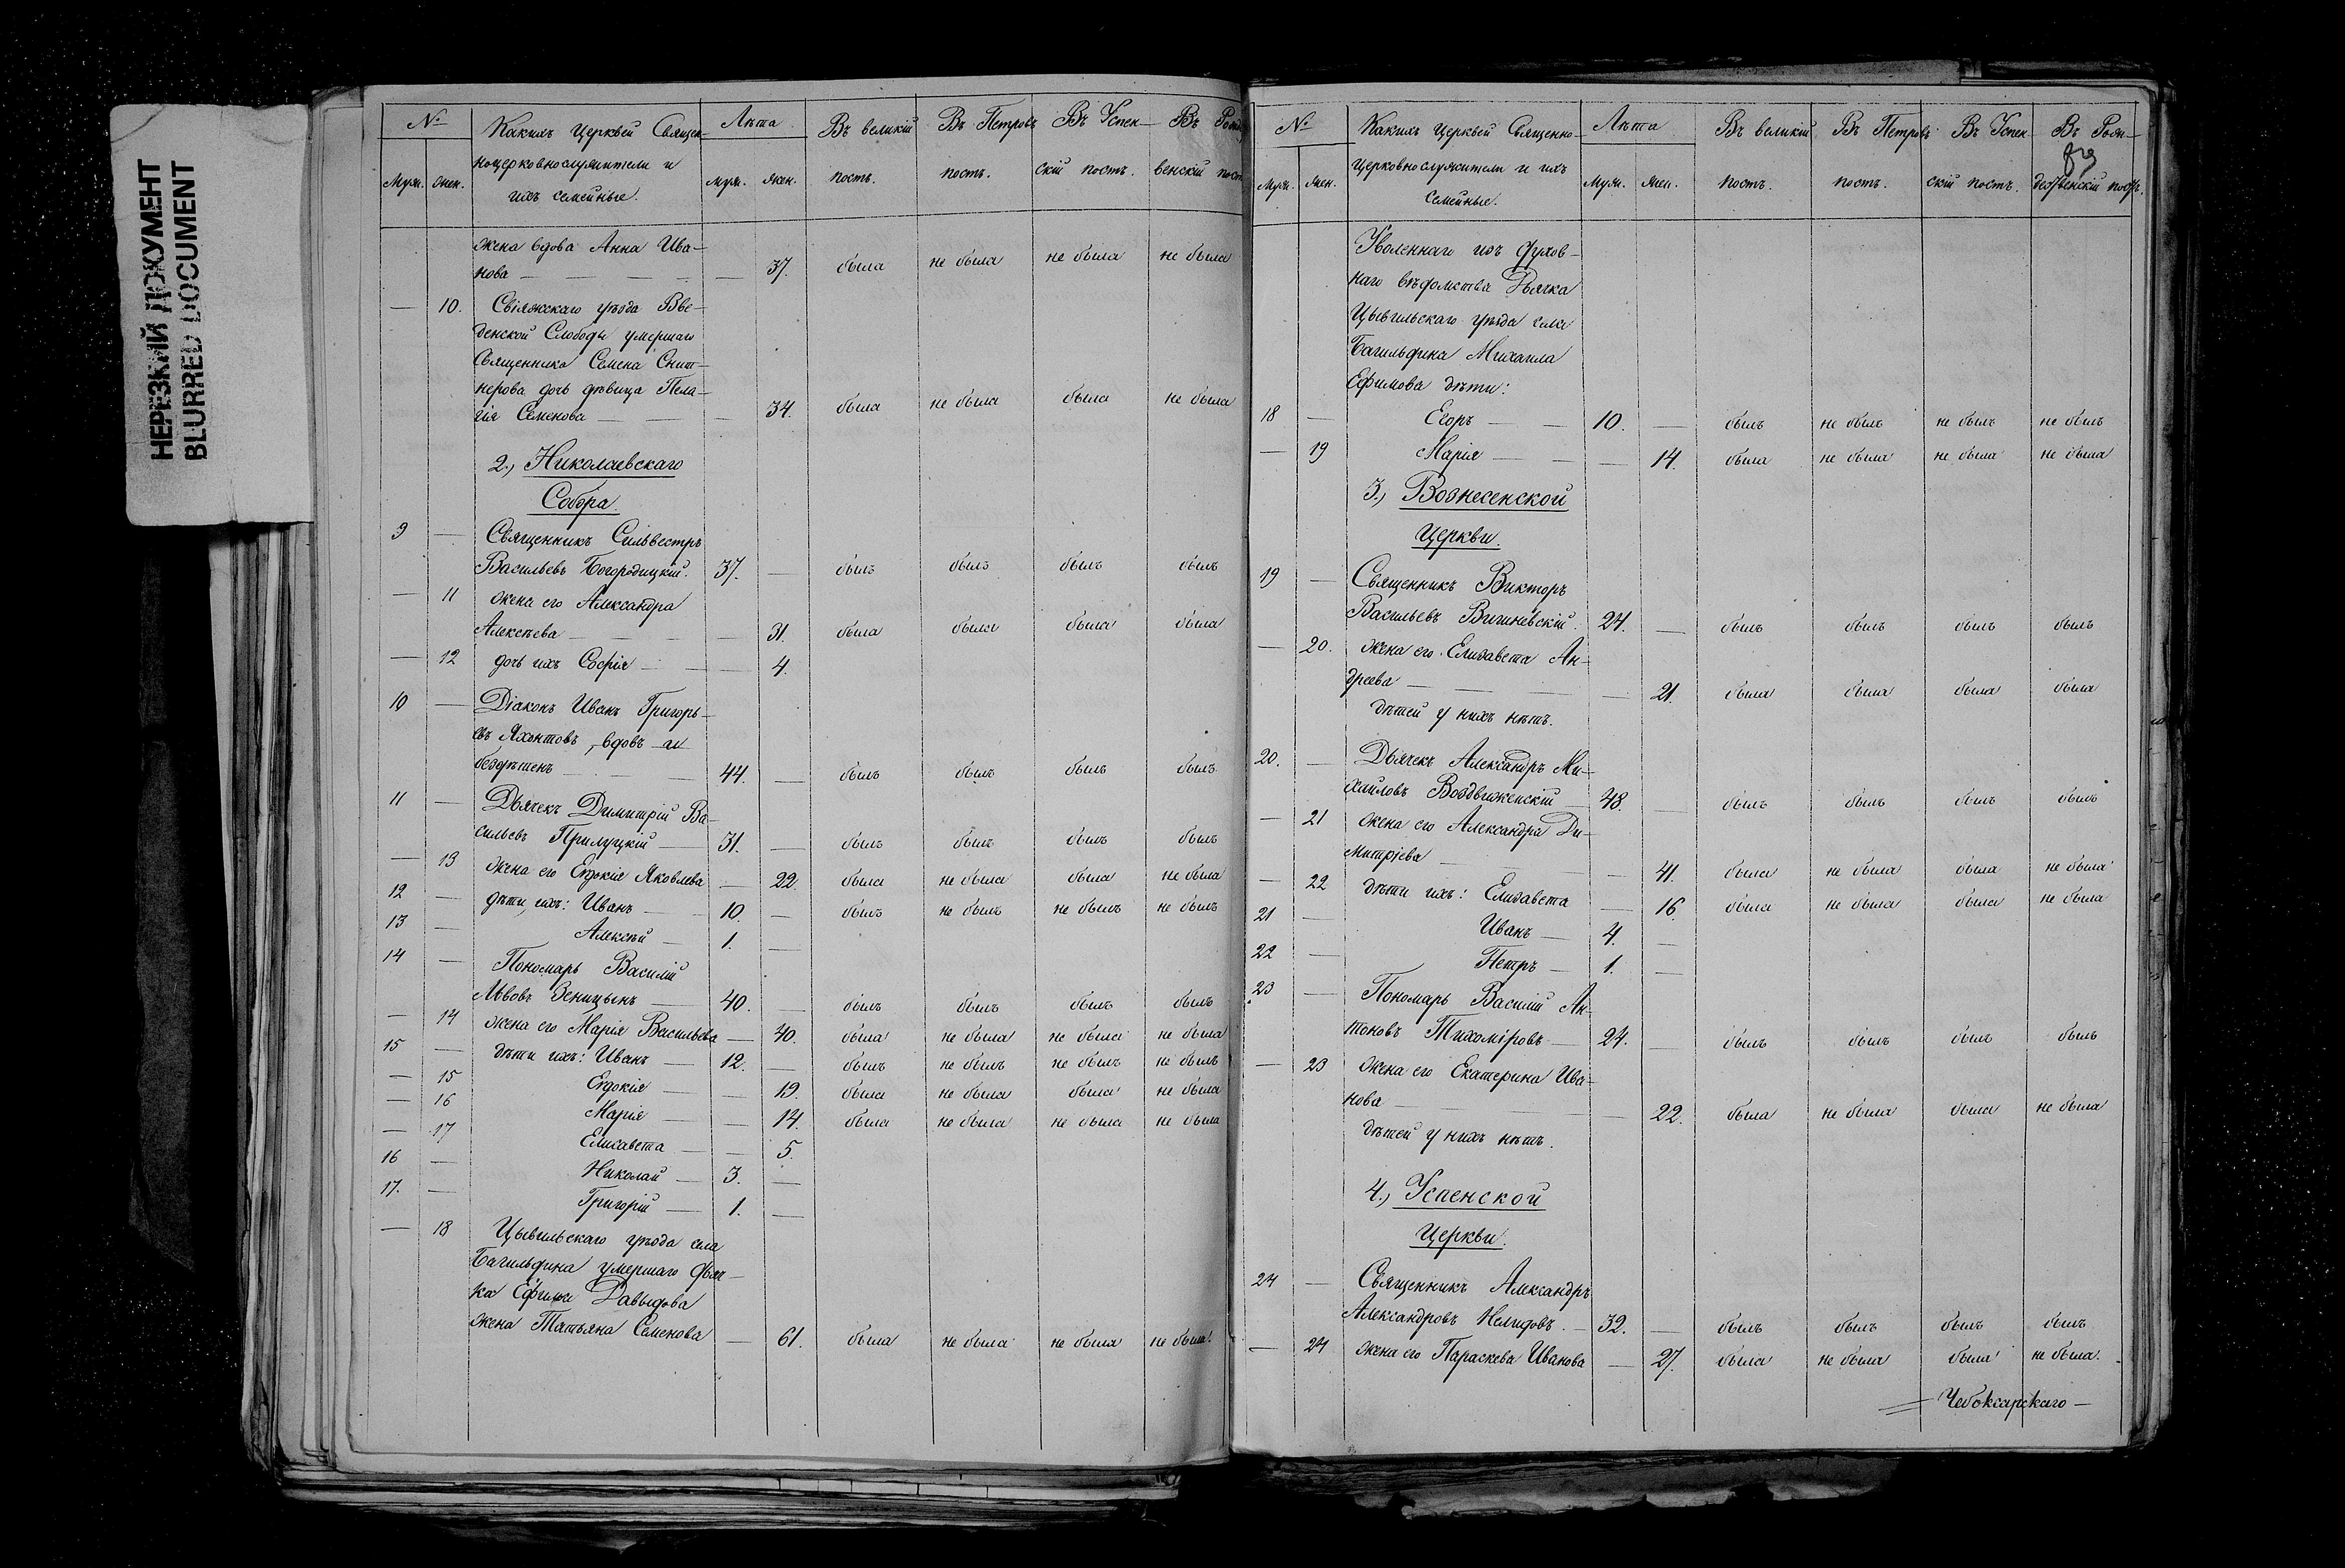 НЕРЕЗКИЙ ДОКУМЕНТ
BLURRED DOCUMENT
№ Какихъ Церквей Священ- Лѣта Въ великій Въ Петровъ Въ Успен- Въ
Муж. жен. ноцерковнослужители и муж. жен. постъ. постъ. скій постъ. венскій
ихъ семейные.
жена вдова Анна Ива-
нова — — 37. была не была не была не была
— 10. Свіяжскаго уѣзда Вве-
денской Слободы умершаго
Священника Семена
дочь дѣвица Пела-
гія Семенова — — 34. была не была была не была
2., Николаевскаго
Собора.
9 — Священникъ Сильвестръ
Васильевъ Богородицкій. 37. — былъ былъ былъ былъ
— 11 жена его Александра
Алексѣева — — 31. была была была была
— 12 дочь ихъ Софія — — 4.
10 — Діаконъ Иванъ Григорь-
евъ Яхонтовъ, вдовъ и
бездѣтенъ — 44. — былъ былъ былъ былъ
11 — Дьячекъ Димитрій Ва-
сильевъ Прилуцкій — 31. — былъ былъ былъ былъ
— 13 жена его Евдокія Яковлева — 22. была не была была не была
12 — дѣти ихъ: Иванъ — 10. — былъ не былъ не былъ не былъ
13 — Алексѣй — 1. —
14 — Пономарь Василій
Львовъ Зеницынъ — 40. — былъ былъ былъ былъ
— 14 жена его Марія Васильева — 40. была не была не была не была
15 — дѣти ихъ: Иванъ — 12. — былъ не былъ не былъ не былъ
— 15 Евдокія — — 19. была не была была не была
— 16 Марія — — 14. была не была не была не была
— 17 Елисавета — — 5.
16 — Николай — 3. —
17. — Григорій — 1. —
— 18 Цывильскаго уѣзда села
Багильдина умершаго дьяч-
ка Ефима Давыдова
жена Татьяна Семенова — 61. была не была не была не была.
№ Какихъ Церквей Священно- Лѣта Въ великій Въ Петровъ Въ Успен- Въ Рож-
Муж. жен. церковнослужители и ихъ муж. жен. постъ. постъ. скій постъ. дественскій постъ.
семейные.
Уволеннаго изъ духов-
наго вѣдомства Дьячка
Цывильскаго уѣзда села
Багильдина Михаила
Ефимова дѣти:
18 — Егоръ — 10. — былъ не былъ не былъ не былъ
— 19 Марія — — 14. была не была не была не была
3., Вознесенской
Церкви.
19 — Священникъ Викторъ
Васильевъ Вишневскій. 24. — былъ былъ былъ былъ
— 20. жена его Елизавета Ан-
дреева — — 21. была была была была
дѣтей у нихъ нѣтъ.
20. — Дьячекъ Александръ Ми-
хайловъ Воздвиженскій — 48. — былъ былъ былъ былъ
— 21 жена его Александра Ди-
митріева — — 41. была не была была не была
— 22 дѣти ихъ: Елизавета — 16. была не была была не была
21 — Иванъ — 4. —
22 — Петръ — 1. —
23 — Пономарь Василій Ан-
тоновъ Тихоміровъ — 24. — былъ былъ былъ былъ
— 23 жена его Екатерина Ива-
нова — — 22. была не была была не была
дѣтей у нихъ нѣтъ.
4., Успенской
Церкви.
24 — Священникъ Александръ
Александровъ Нелидовъ. — 32. — былъ былъ былъ былъ
— 24 жена его Параскева Иванова — 27. была не была была не была.
= Чебоксарскаго —